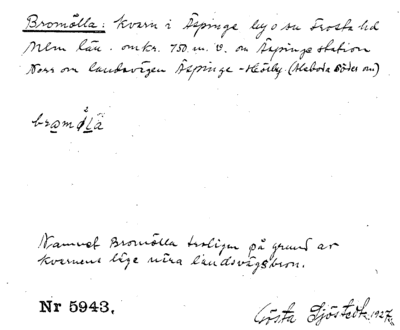 Bromölla: kvarn i Äspinge by o sn Frosta hd
Mlm län. omkr. 750 m. v. om Äspinge station
Norr om landsvägen Äspinge - Hörby. (Alaboda söder om)
Namnet Bromölla troligen på grund av
kvarnens läge nära landsvägsbron.
Nr 5943.
Gösta Sjöstedt, 1927.